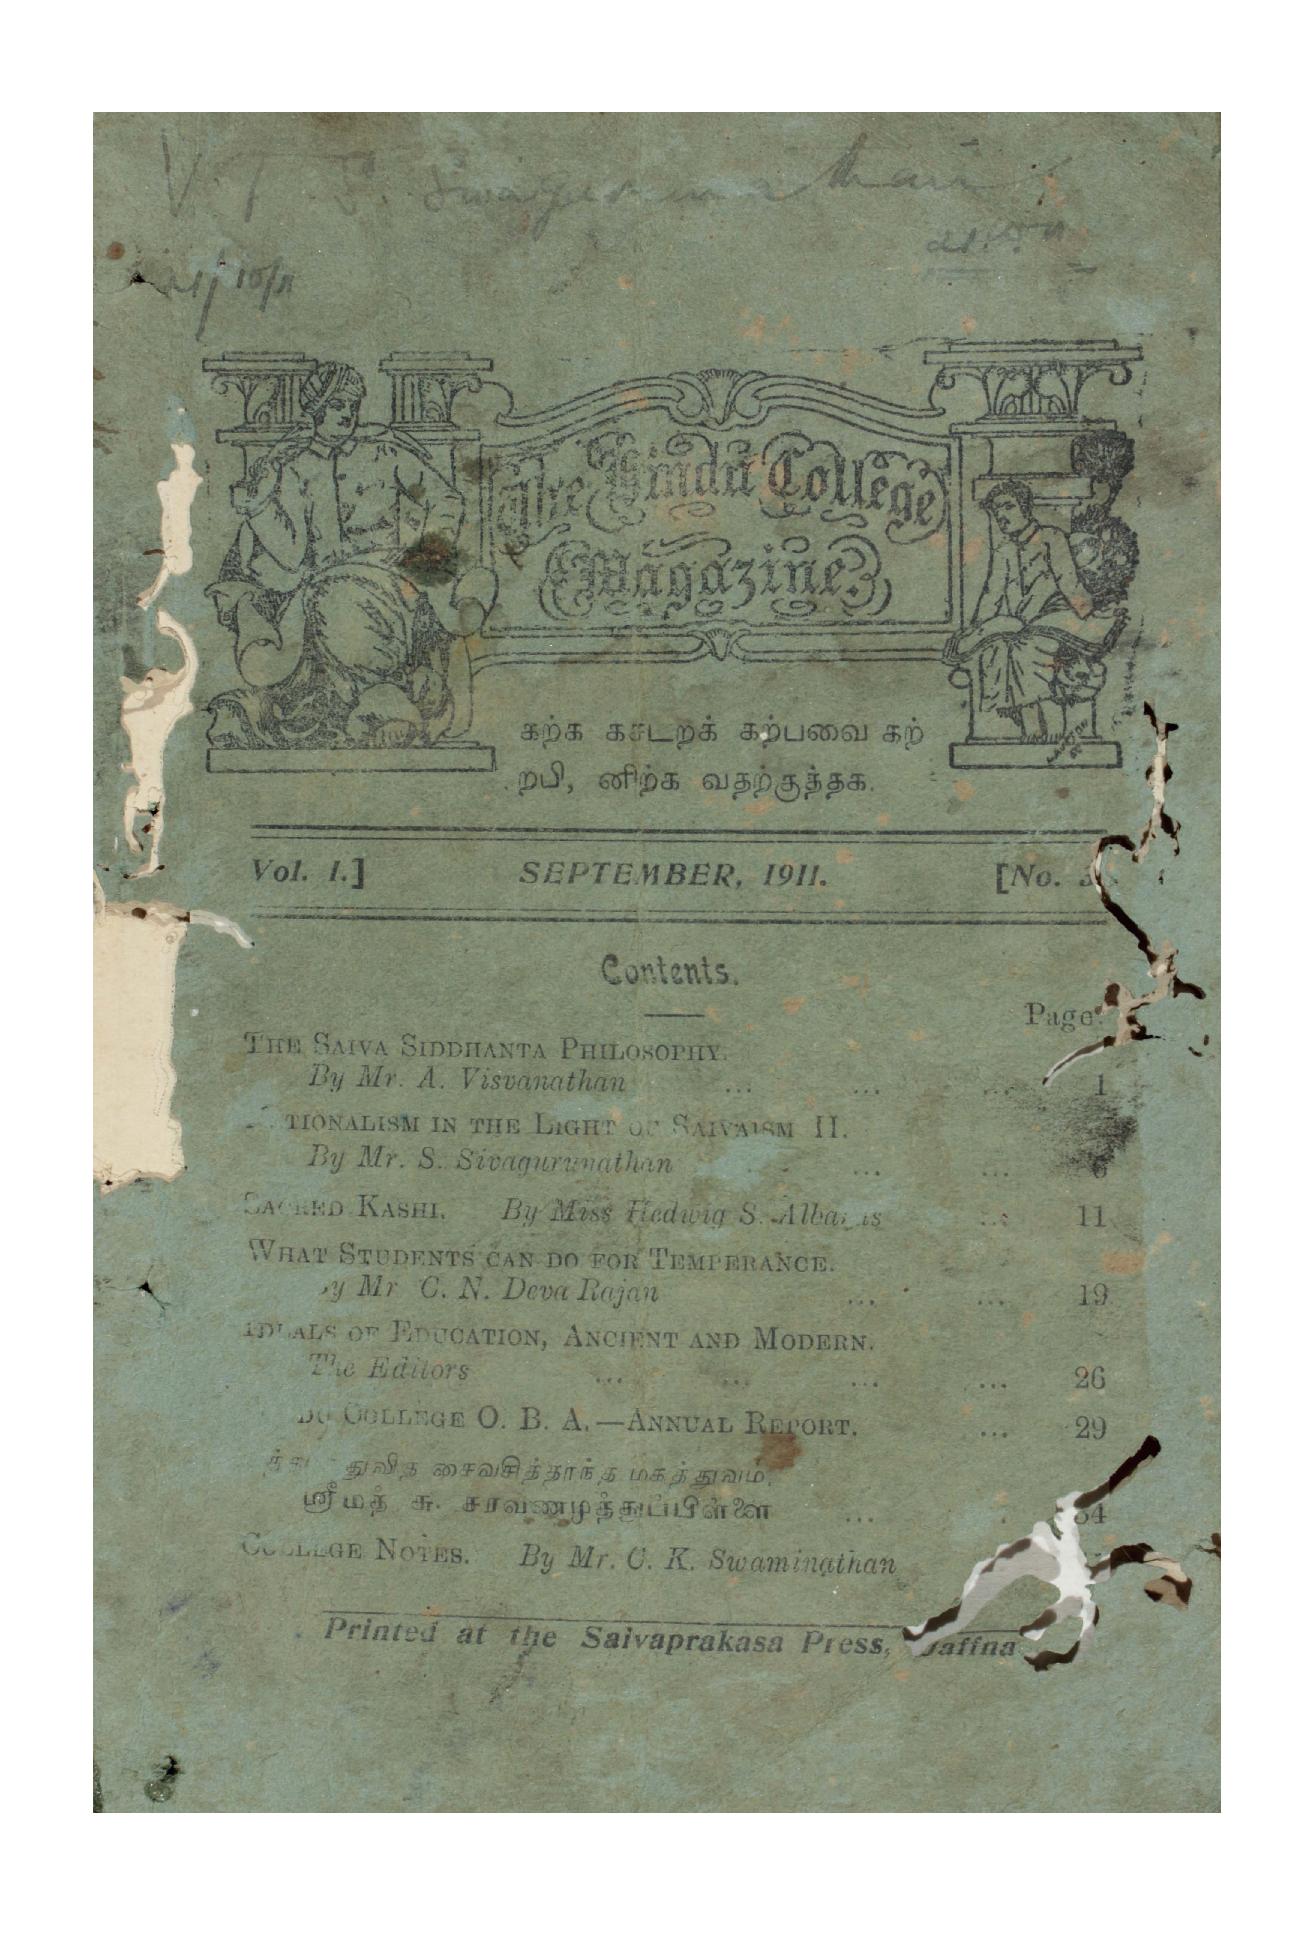 The Hindu College
Magazine
கற்க கசடறக் கற்பவை கற்
றபி, னிற்க வதற்குத்தக.
Vol. I.] SEPTEMBER, 1911. [No.
Contents.
Page.
THE SAIVA SIDDHANTA PHILOSOPHY.
By Mr. A. Visvanathan ... ... ... 1
IN THE LIGHT OF SAIVAISM II.
By Mr. S. Sivagurunathan ... ... 6
SACRED KASHI. By Miss Hedwig S. ... 11
WHAT STUDENTS CAN DO FOR TEMPERANCE.
By Mr C. N. Deva Rajan ... ... 19
IDEALS OF EDUCATION, ANCIENT AND MODERN.
The Editors ... ... ... ... 26
COLLEGE O. B. A.—ANNUAL REPORT. ... 29
சைவசித்தாந்த மகத்துவம்.
ஸ்ரீமத் சு. சரவணமுத்துப்பிள்ளை ... . 34
COLLEGE NOTES. By Mr. C. K. Swaminathan
Printed at the Saivaprakasa Press, Jaffna